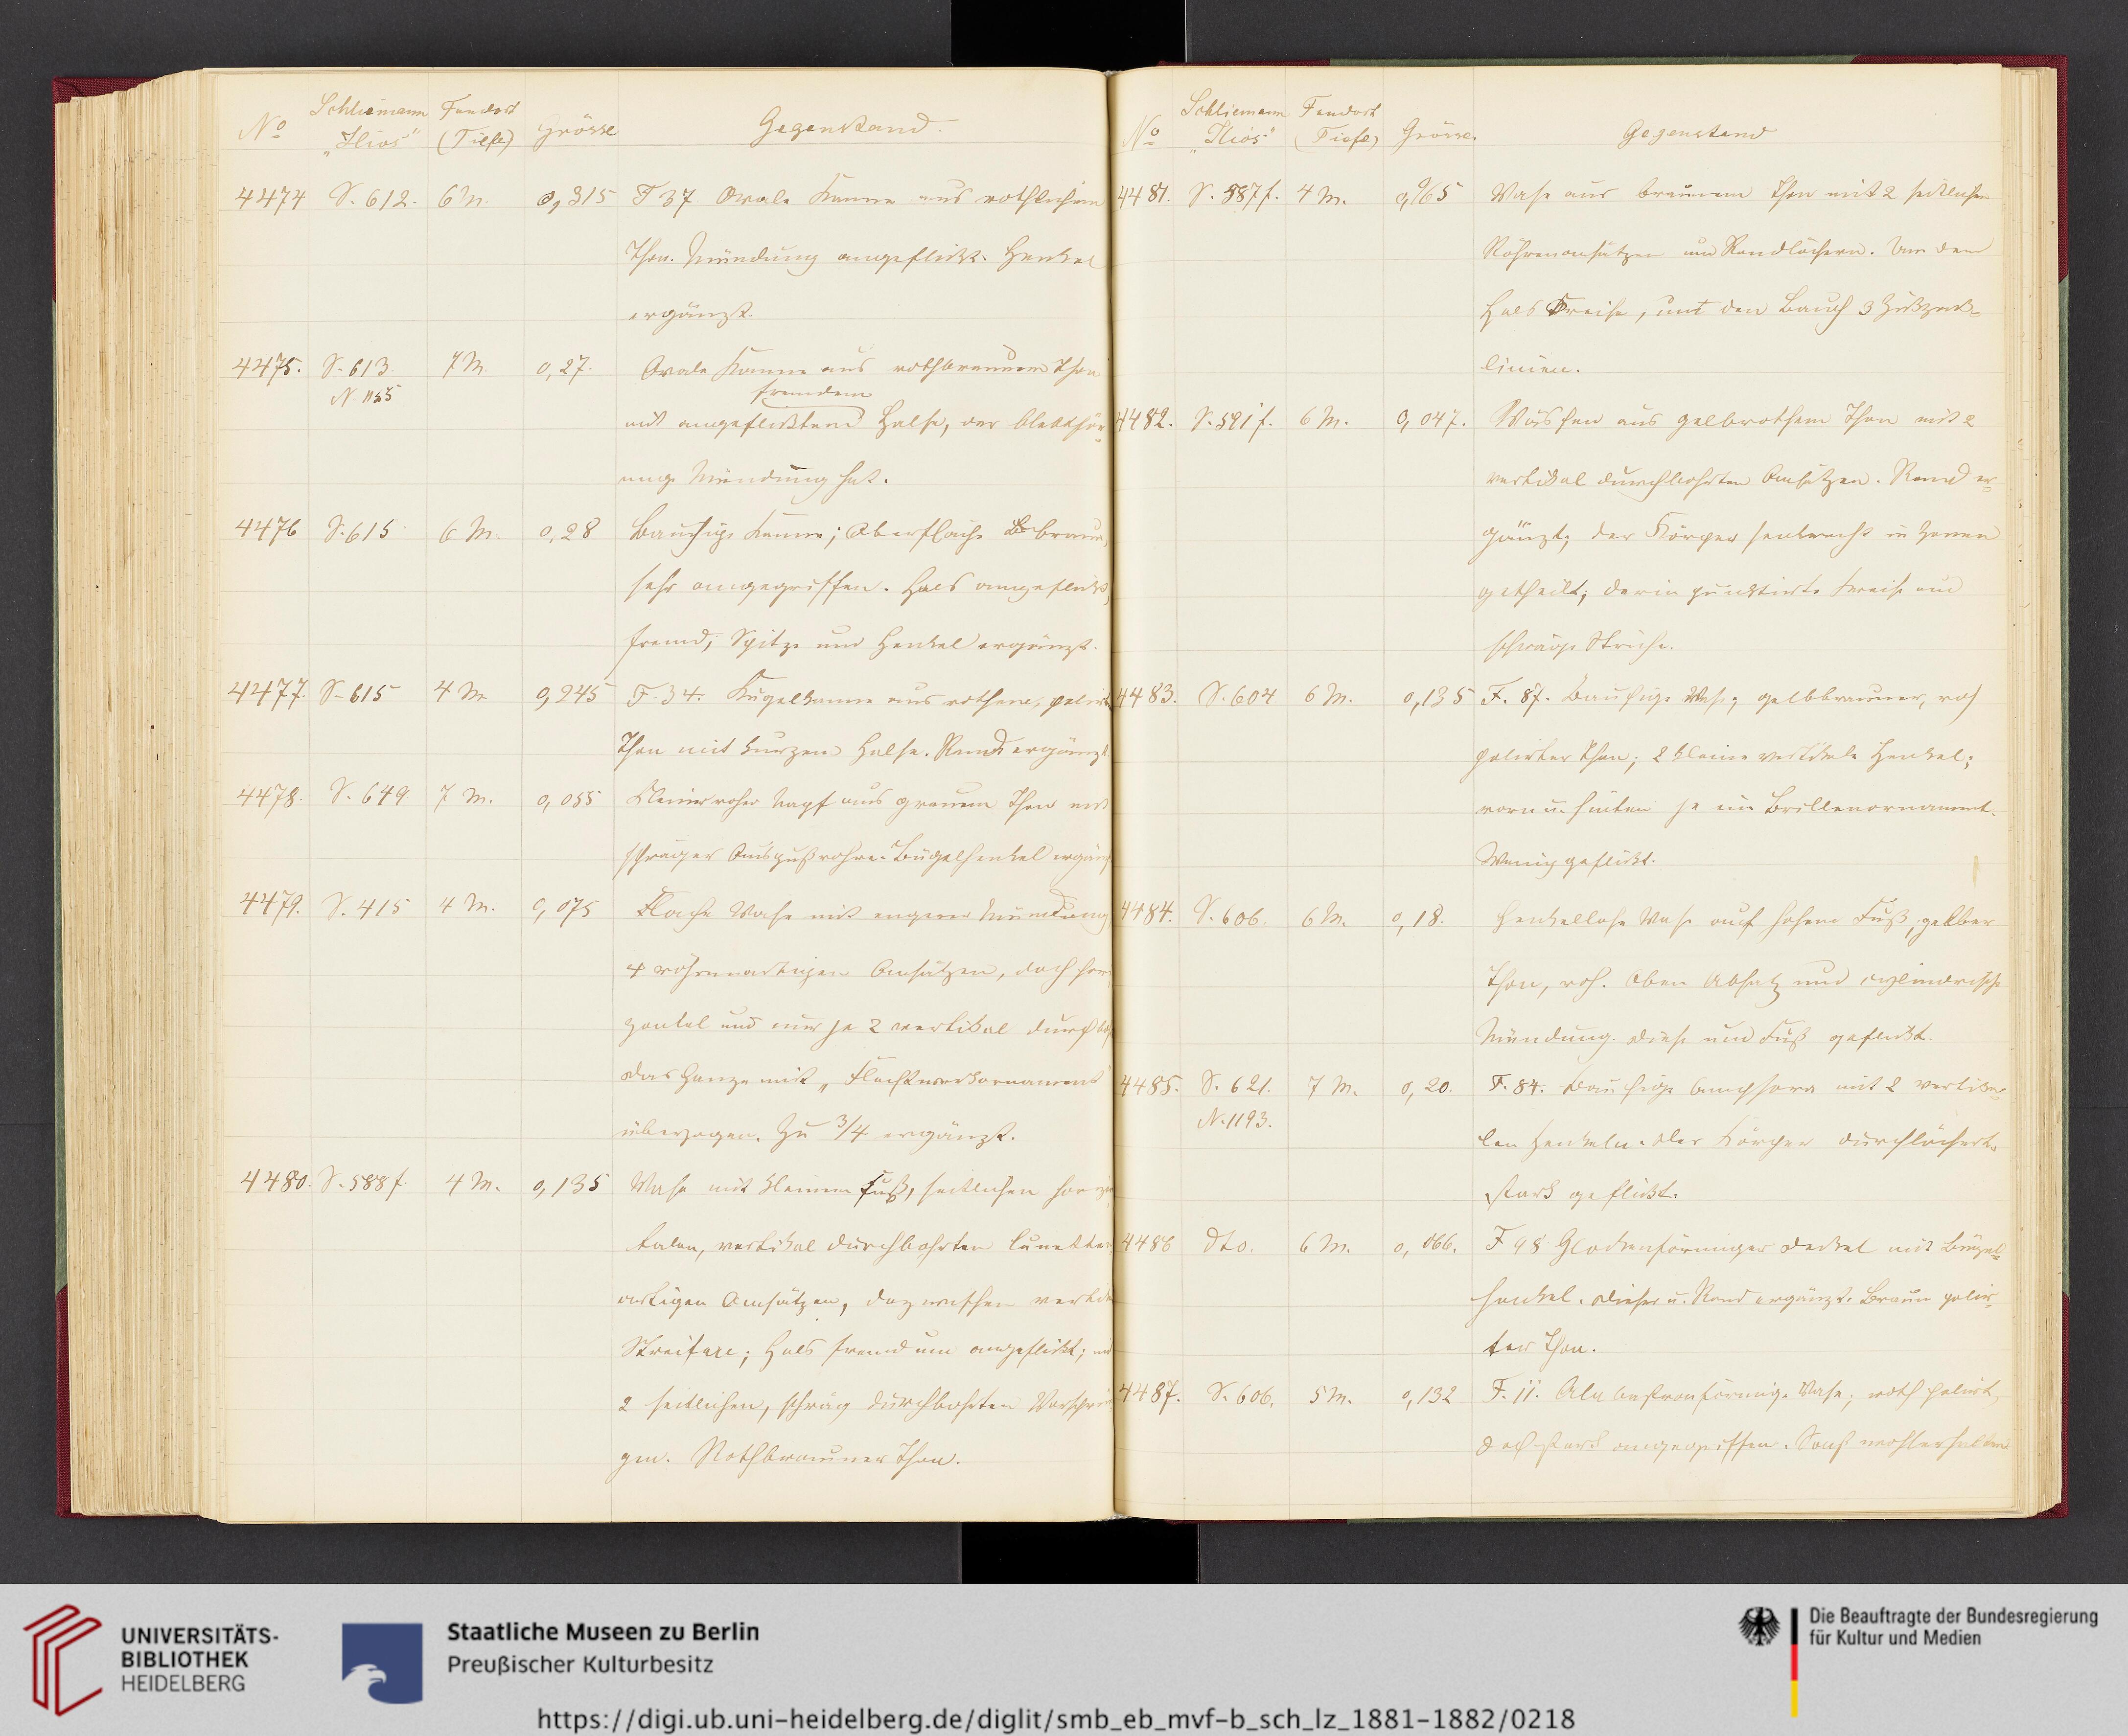 No Schliemann Fundort Grösse Gegenstand.
"Ilios" (Tiefe)
4474 S. 612. 6 M. 0,315 F 37 Ovale Kanne aus röthlichem
Thon. Mündung angeflickt. Henkel
ergänzt.
4475. S. 613. 7 M. 0,27. Ovale Kanne aus rothbraunem Thon
N 1155 fremdem
mit angeflicktem Halse, der kleeblattför-
mige Mündung hat.
4476 S. 615. 6 M. 0,28 Bauchige Kanne; Oberfläche braun,
sehr angegriffen. Hals angeflickt,
fremd, Spitze und Henkel ergänzt.
4477. S. 615 4 M. 0,245 F. 34. Kugelkanne aus rothem, polirt
Thon mit kurzem Halse. Rand ergänzt.
4478. S. 649 7 M. 0,055 Kleiner roher Napf aus grauem Thon mit
schräger Ausgußröhre. Bügelhenkel ergänzt
4479. S. 415 4 M. 0,075 Flache Vase mit engerer Mündung,
4 röhrenartigen Ansätzen, doch hori
zontal und nur je 2 vertikal durchboh
das Ganze mit "Flechtwerkornament"
überzogen. Zu 3/4 ergänzt.
4480. S. 588 f. 4 M. 0,135 Vase mit kleinem Fuß, seitlichen horizon
talen, vertikal durchbohrten lünetten
artigen Ansätzen, dazwischen vertik
Streifen; Hals fremd und angeflickt; mit
2 seitlichen, schräg durchbohrten Vorsprün
gen. Rothbrauner Thon.
No Schliemann Fundort Grösse. Gegenstand
"Ilios" (Tiefe)
4481. S. 587 f. 4 M. 0,165 Vase aus braunem Thon mit 2 seitlichen
Röhrenansätzen und Randlöchern. Um den
Hals Kreise, um den Bauch 3 Zickzack-
linien.
4482. S. 591 f. 6 M. 0,047. Väschen aus gelbrothem Thon mit 2
vertikal durchbohrten Ansätzen. Rand er-
gänzt; der Körper senkrecht in Zonen
getheilt; darin punktirte Kreise und
schräge Striche.
4483. S. 604 6 M. 0,135 F. 87. Bauchige Vase; gelbbrauner, roh
polirter Thon; 2 kleine vertikale Henkel;
vorn u. hinten je ein Brillenornament.
Wenig geflickt.
4484. S. 606. 6 M. 0,18. Henkellose Vase auf hohem Fuß; gelber
Thon, roh. Oben Absatz und cylindrische
Mündung. Diese und Fuß geflickt.
4485. S. 621. 7 M. 0,20. F. 84. Bauchige Amphora mit 2 vertika-
N. 1193.
len Henkeln. Der Körper durchlöchert.
Stark geflickt.
4486 dto. 6 M. 0,066. F 98 Glockenförmiger Deckel mit Bügel-
henkel. Dieser u. Rand ergänzt. Braun polir-
ter Thon.
4487. S. 606. 5 M. 0,132 F. 11. Alabastronförmige Vase; roth polirt,
doch stark angegriffen. Sonst wohlerhalten
UNIVERSITÄTS-
BIBLIOTHEK
HEIDELBERG
Staatliche Museen zu Berlin
Preußischer Kulturbesitz
Die Beauftragte der Bundesregierung
für Kultur und Medien
https://digi.ub.uni-heidelberg.de/diglit/smb_eb_mvf-b_sch_lz_1881-1882/0218